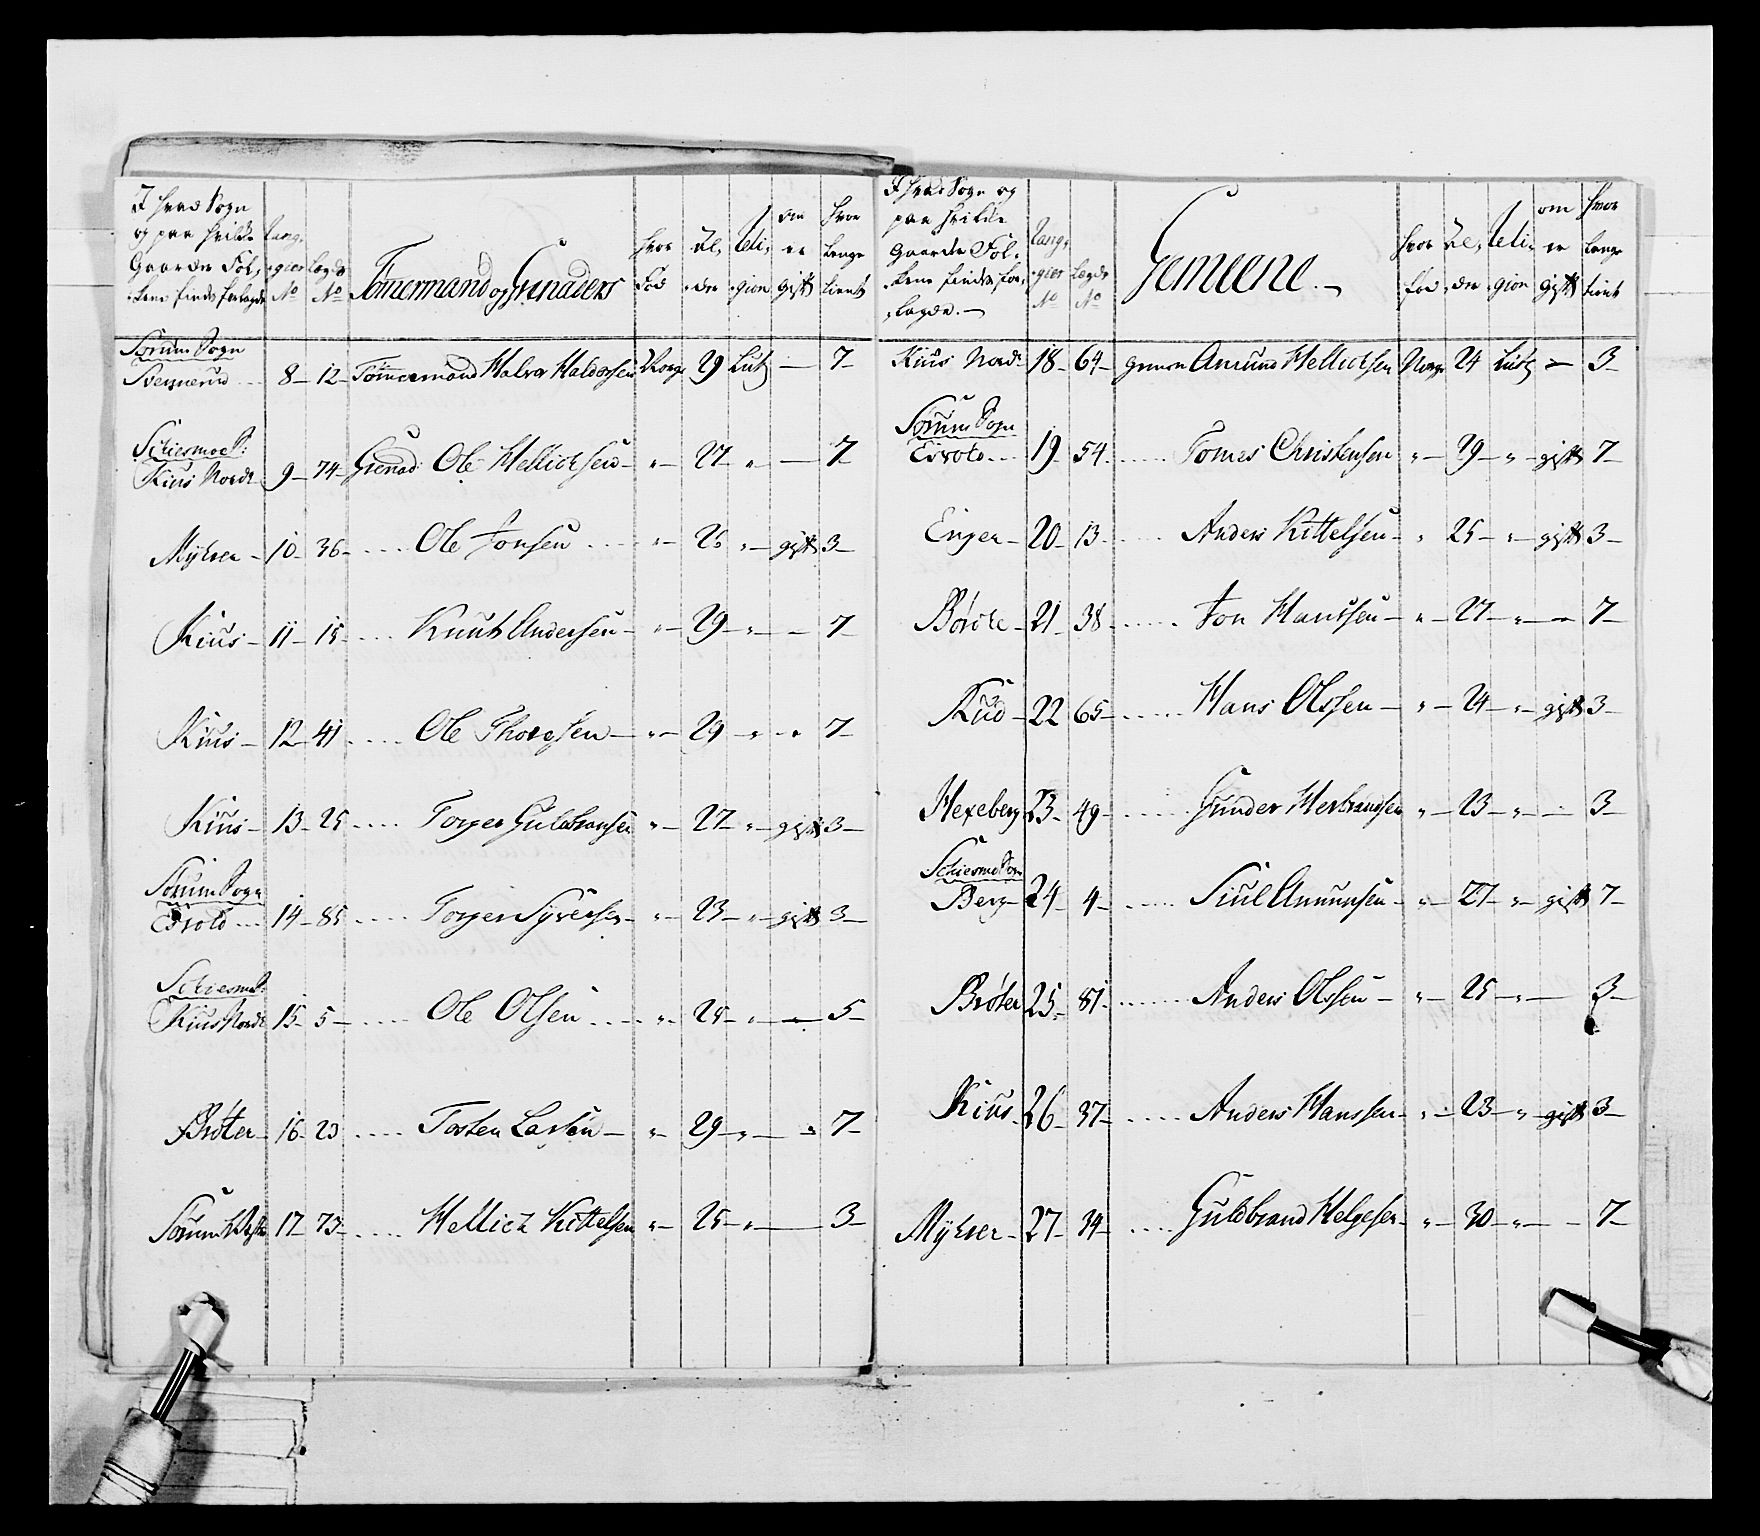 I hvad Sogn
og paa hvilke
Gaarde Fol-
kene findes forlagde
Rang-
gier
No
Lægds
No
Tømermand og Grenaders
hvor
Fød
Al-
der
Reli-
gion
om
er
gift
hvor
længe
tient
Sørum Sogn
Svennerud ... 8 - 12 - Tømmermand Halvor Haldorsen Norge 29 Luth — 7 -
Schiesmoe S:
Kius Nordr - 9 - 74 - Grenad: Ole Hellichsen - " - 27 " - — 7 -
Myhrer - 10 - 36 - .... Ole Jonsen .... " - 26 " - gift 3 -
Kius - 11 - 15 .... Knuth Andersen - " - 29 - " - — 7 -
Kius - 12 - 41 .... Ole Thoresen - " - 29 - " - " 7 -
Kius - 13 - 25 .... Torger Guldbransen " - 27 - " - gift 3 -
Sørum Sogn
Eivold ... 14 - 85 .... Torger Syversen - " - 23 - " - gift 3 -
Schiesmoe:
Kius Nordr 15 - 5 - .... Ole Olsen .... " - 25 - " - — 5 -
Brøter - 16 - 23 .... Torsten Larsen - " - 29 - " - — 7 -
Sørum 17 - 73 - .... Hellich Kittelsen " - 25 - " - — 3 -
I hvad Sogn og
paa hvilke
Gaarde Fol-
kene findes for-
lagde. —
Rang-
gier
No
Lægds
No
Gemeene. —
hvor
fød
Al-
der
Reli-
gion
om
er
gift
hvor
længe
tient
Kius Nord: 18 - 64 - gemen Amund Hellichsen Norge 24 Luth — 3 -
Sørum Sogn
Eivold ... 19 - 54 ..... Tomes Christensen " - 29 - " - gift 7 -
Enger - 20 - 13 ..... Anders Kittelsen - " 25 - " - gift 3 -
Børke - 21 - 38 ..... Jon Hanssen - " - 27 - " - — 7 -
Rud - 22 65 - ..... Hans Olssen - " - 24 - " - gift 3 -
Hexeberg 23 - 49 - ..... Gunder Herbrandsen " - 23 - " - — 3 -
Schiesmo Sogn
Berg - 24 - 4 - ..... Siul Amundsen - " - 27 - " - gift 7 -
Brøter 25 - 81 ...... Anders Olssen - " - 25 - " - — 3 -
Kius - 26 - 37 - .... Anders Hanssen - " - 23 - " - gift 3 -
Myhrer - 27 - 34 - .... Guldbrand Helgesen - " - 30 - " - — 7 -